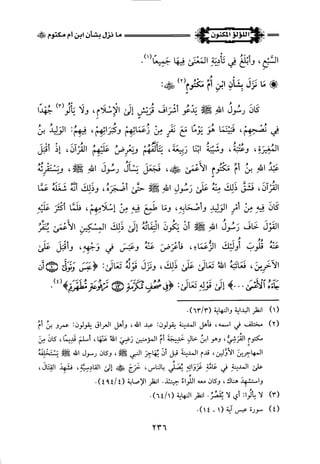 اللؤلؤ المكنون
ما نزل بشأن ابن أم مكتوم ﷺ
السَّبْعِ، وَأَبْلَغُ فِي تَأْدِيَةِ المَعْنَى فِيهَا جَمِيعًا(١).
* مَا نَزَلَ بِشَأْنِ ابْنِ أُمِّ مَكْتُومٍ(٢) ﷺ:
كَانَ رَسُولُ اللهِ ﷺ يَدْعُو أَشْرَافَ قُرَيْشٍ إِلَى الْإِسْلَامِ، وَلَا يَأْلُو(٣) جُهْدًا
فِي نُصْحِهِمْ، فَبَيْنَمَا هُوَ يَوْمًا مَعَ نَفَرٍ مِنْ زُعَمَائِهِمْ وَكُبَرَائِهِمْ، فِيهِمُ: الوَلِيدُ بنُ
المُغِيرَةِ، وَعُتْبَةُ، وَشَيْبَةُ ابْنَا رَبِيعَةَ، يَتَأَلَّفُهُمْ وَيَعْرِضُ عَلَيْهِمُ القُرْآنَ، إِذْ أَقْبَلَ
عَبْدُ اللهِ بنُ أُمِّ مَكْتُومٍ الأَعْمَى، فَجَعَلَ يَسْأَلُ رَسُولَ اللهِ ﷺ، وَيَسْتَقْرِئُهُ
القُرْآنَ، فَشَقَّ ذَلِكَ مِنْهُ عَلَى رَسُولِ اللهِ ﷺ حَتَّى أَضْجَرَهُ، وَذَلِكَ أَنَّهُ شَغَلَهُ عَمَّا
كَانَ فِيهِ مِنْ أَمْرِ الوَلِيدِ وَأَصْحَابِهِ، وَمَا طَمِعَ فِيهِ مِنْ إِسْلَامِهِمْ، فَلَمَّا أَكْثَرَ عَلَيْهِ
القَوْلَ خَافَ رَسُولُ اللهِ ﷺ أَنْ يَكُونَ الْتِفَاتُهُ إِلَى ذَلِكَ المِسْكِينِ الأَعْمَى يُنَفِّرُ
عَنْهُ قُلُوبَ أُولَئِكَ الزُّعَمَاءِ، فَأَعْرَضَ عَنْهُ وَعَبَسَ فِي وَجْهِهِ، وَأَقْبَلَ عَلَى
الآخَرِينَ، فَعَاتَبَهُ اللهُ تَعَالَى عَلَى ذَلِكَ، وَنَزَلَ قَوْلُهُ تَعَالَى: ﴿عَبَسَ وَتَوَلَّىٰ ۝ أَن
جَاءَهُ الْأَعْمَىٰ ...﴾ إِلَى قَوْلِهِ تَعَالَى: ﴿فِي صُحُفٍ مُّكَرَّمَةٍ ۝ مَّرْفُوعَةٍ مُّطَهَّرَةٍ﴾(٤).
(١) انظر البداية والنهاية (٦٣/٣).
(٢) مختلف في اسمه، فأهل المدينة يقولون: عبد الله، وأهل العراق يقولون: عمرو بن أمِّ
مكتوم القُرَشِيُّ، وهو ابنُ خالِ خديجةَ أمِّ المؤمنين رَضِيَ اللهُ عَنْهَا، أسلم قَدِيمًا، كان مِنَ
المهاجرينَ الأوَّلين، قدم المدينة قبل أن يُهَاجِرَ النبي ﷺ، وكان رسول الله ﷺ يَسْتَخْلِفُهُ
على المدينة في عامَّةِ غَزَواتِهِ يُصَلِّي بالناس، خَرَجَ ﷺ إلى القادِسِيَّةِ، فشهِدَ القِتَالَ،
واستشهِدَ هناكَ، وكان معه اللِّوَاءُ حينئذ. انظر الإصابة (٤٩٤/٤).
(٣) لا يَأْلُوا: أي لا يُقَصِّرُ. انظر النهاية (٦٤/١).
(٤) سورة عبس آية (١ - ١٤).
٢٣٦